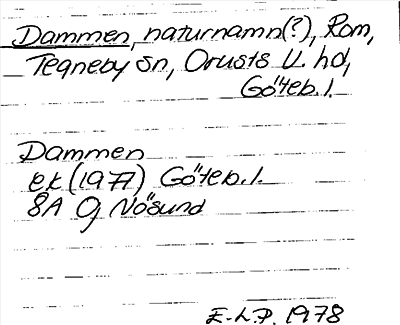 Dammen, naturnamn(?), Rom,
Tegneby sn, Orusts V. hd,
Göteb. l.
Dammen
ek (1977) Göteb. l.
8A 9j Nösund
E-L.P. 1978